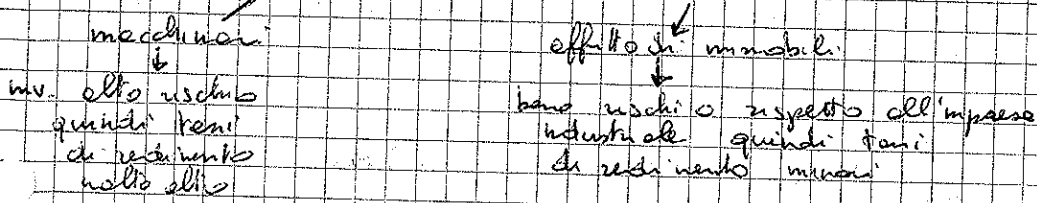 macchinari
inv. alto rischio
quindi tassi
di rendimento
molto alto
affitto di immobili
basso rischio rispetto all'impresa
industriale quindi tassi
di rendimento minori